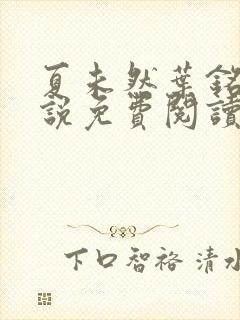 夏未然葉銘
說免費閱讀
下口智裕 清水